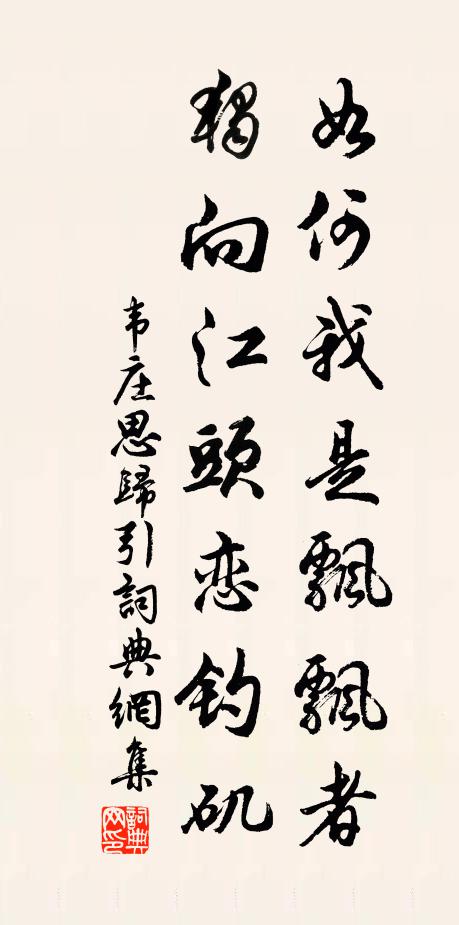 如何我是飄飄者
獨向江頭恋钓矶
韦庄思歸引詞典網集
詞典
网印